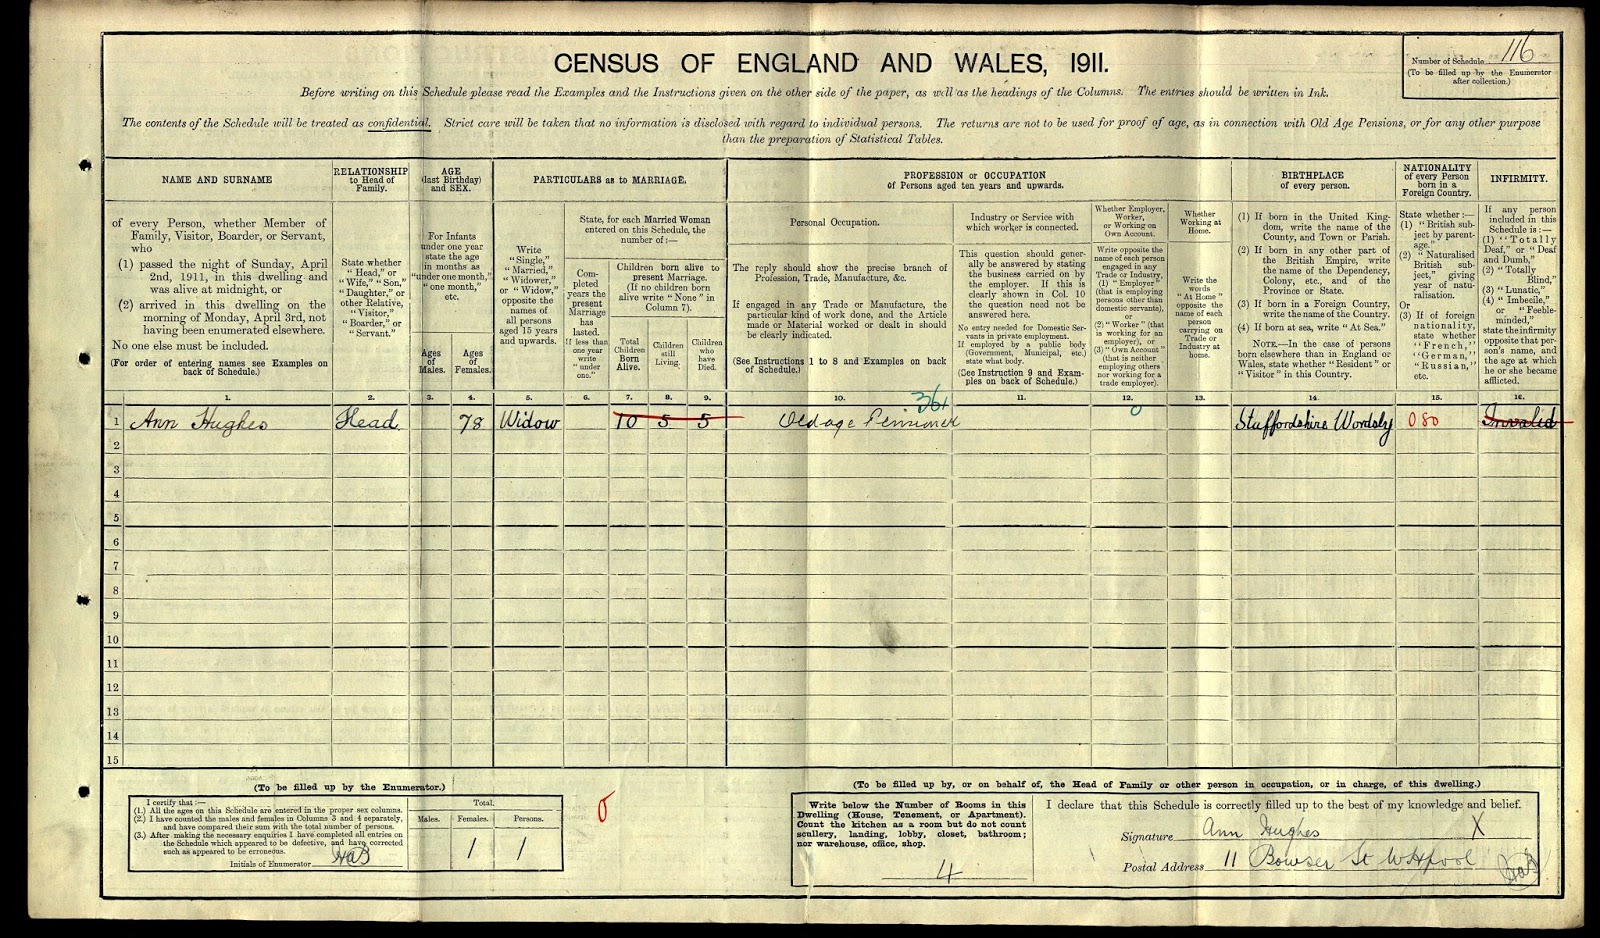 CENSUS OF ENGLAND AND WALES, 1911.
Number of Schedule 116
(To be filled up by the Enumerator
after collection.)
Before writing on this Schedule please read the Examples and the Instructions given on the other side of the paper, as well as the headings of the Columns. The entries should be written in Ink.
The contents of the Schedule will be treated as confidential. Strict care will be taken that no information is disclosed with regard to individual persons. The returns are not to be used for proof of age, as in connection with Old Age Pensions, or for any other purpose
than the preparation of Statistical Tables.
NAME AND SURNAME
RELATIONSHIP
to Head of
Family.
AGE
(last Birthday)
and SEX.
PARTICULARS as to MARRIAGE.
PROFESSION or OCCUPATION
of Persons aged ten years and upwards.
BIRTHPLACE
of every person.
NATIONALITY
of every Person
born in a
Foreign Country.
INFIRMITY.
of every Person, whether Member of
Family, Visitor, Boarder, or Servant,
who
(1) passed the night of Sunday, April
2nd, 1911, in this dwelling and
was alive at midnight, or
(2) arrived in this dwelling on the
morning of Monday, April 3rd, not
having been enumerated elsewhere.
No one else must be included.
(For order of entering names see Examples on
back of Schedule.)
State whether
"Head," or
"Wife," "Son,"
"Daughter," or
other Relative,
"Visitor,"
"Boarder," or
"Servant."
For Infants
under one year
state the age
in months as
"under one month,"
"one month,"
etc.
Ages
of
Males.
Ages
of
Females.
Write
"Single,"
"Married,"
"Widower,"
or "Widow,"
opposite the
names of
all persons
aged 15 years
and upwards.
State, for each Married Woman
entered on this Schedule, the
number of:—
Com-
pleted
years the
present
Marriage
has
lasted.
If less than
one year
write
"under
one."
Children born alive to
present Marriage.
(If no children born
alive write "None" in
Column 7).
Total
Children
Born
Alive.
Children
still
Living.
Children
who
have
Died.
Personal Occupation.
The reply should show the precise branch of
Profession, Trade, Manufacture, &c.
If engaged in any Trade or Manufacture, the
particular kind of work done, and the Article
made or Material worked or dealt in should
be clearly indicated.
(See Instructions 1 to 8 and Examples on back
of Schedule.)
Industry or Service with
which worker is connected.
This question should gener-
ally be answered by stating
the business carried on by
the employer. If this is
clearly shown in Col. 10
the question need not be
answered here.
No entry needed for Domestic Ser-
vants in private employment.
If employed by a public body
(Government, Municipal, etc.)
state what body.
(See Instruction 9 and Exam-
ples on back of Schedule.)
Whether Employer,
Worker,
or Working on
Own Account.
Write opposite the
name of each person
engaged in any
Trade or Industry,
(1) "Employer"
(that is employing
persons other than
domestic servants),
or
(2) "Worker" (that
is working for an
employer), or
(3) "Own Account"
(that is neither
employing others
nor working for a
trade employer).
Whether
Working at
Home.
Write the
words
"At Home"
opposite the
name of each
person
carrying on
Trade or
Industry at
home.
(1) If born in the United King-
dom, write the name of the
County, and Town or Parish.
(2) If born in any other part of
the British Empire, write
the name of the Dependency,
Colony, etc., and of the
Province or State.
(3) If born in a Foreign Country,
write the name of the Country.
(4) If born at sea, write "At Sea."
NOTE.—In the case of persons
born elsewhere than in England or
Wales, state whether "Resident" or
"Visitor" in this Country.
State whether:—
(1) "British sub-
ject by parent-
age."
(2) "Naturalised
British sub-
ject," giving
year of natu-
ralisation.
Or
(3) If of foreign
nationality,
state whether
"French,"
"German,"
"Russian,"
etc.
If any person
included in this
Schedule is:—
(1) "Totally
Deaf," or "Deaf
and Dumb,"
(2) "Totally
Blind,"
(3) "Lunatic,"
(4) "Imbecile,"
or "Feeble-
minded,"
state the infirmity
opposite that per-
son's name, and
the age at which
he or she became
afflicted.
1. 2. 3. 4. 5. 6. 7. 8. 9. 10. 11. 12. 13. 14. 15. 16.
1 Ann Hughes Head 78 Widow 10 5 5 Old age Pensioner 361 0 Staffordshire Wordsly 080 Invalid
2
3
4
5
6
7
8
9
10
11
12
13
14
15
(To be filled up by the Enumerator.)
I certify that:—
(1.) All the ages on this Schedule are entered in the proper sex columns.
(2.) I have counted the males and females in Columns 3 and 4 separately,
and have compared their sum with the total number of persons.
(3.) After making the necessary enquiries I have completed all entries on
the Schedule which appeared to be defective, and have corrected
such as appeared to be erroneous.
Initials of Enumerator HAB
Total.
Males. Females. Persons.
1 1
0
(To be filled up by, or on behalf of, the Head of Family or other person in occupation, or in charge, of this dwelling.)
Write below the Number of Rooms in this
Dwelling (House, Tenement, or Apartment).
Count the kitchen as a room but do not count
scullery, landing, lobby, closet, bathroom;
nor warehouse, office, shop.
4
I declare that this Schedule is correctly filled up to the best of my knowledge and belief.
Signature Ann Hughes X
Postal Address 11 Bowser St W Hpool HaB